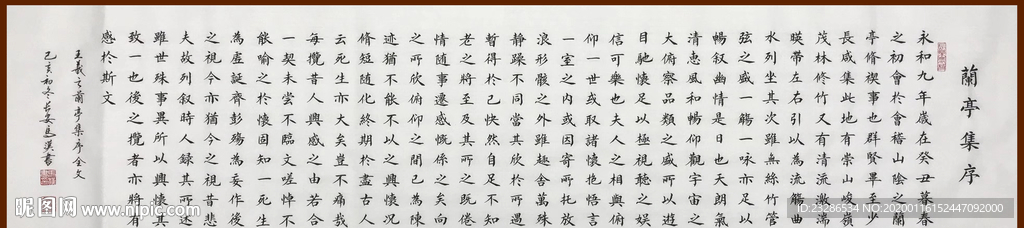 蘭亭集序
永和九年歲在癸丑暮春
之初會於會稽山陰之蘭
亭脩禊事也群賢畢至少
長咸集此地有崇山峻嶺
茂林修竹又有清流激湍
暎帶左右引以為流觴曲
水列坐其次雖無絲竹管
弦之盛一觴一咏亦足以
暢叙幽情是日也天朗氣
清惠風和暢仰觀宇宙之
大俯察品類之盛所以遊
目馳懷足以極視聽之娛
信可樂也夫人之相與俯
仰一世或取諸懷抱悟言
一室之內或因寄所托放
浪形骸之外雖趣舍萬殊
靜躁不同當其欣於所遇
暫得於己快然自足不知
老之將至及其所之既倦
情隨事遷感慨係之矣向
之所欣俯仰之間已為
迹猶不能不以之興懷况
脩短隨化終期於盡古人
云死生亦大矣豈不痛哉
每攬昔人興感之由若合
一契未嘗不臨文嗟悼不
能喻之於懷固知一死生
為虛誕齊彭殤為妄作後
之視今亦猶今之視昔悲
夫故列叙時人録其所述
雖世殊事異所以興懷其
致一也後之攬者亦將有
感於斯文
王羲之蘭亭集序全文
己亥初冬 書
昵图网 www.nipic.com
ID:23286534 NO:20200116152447092000